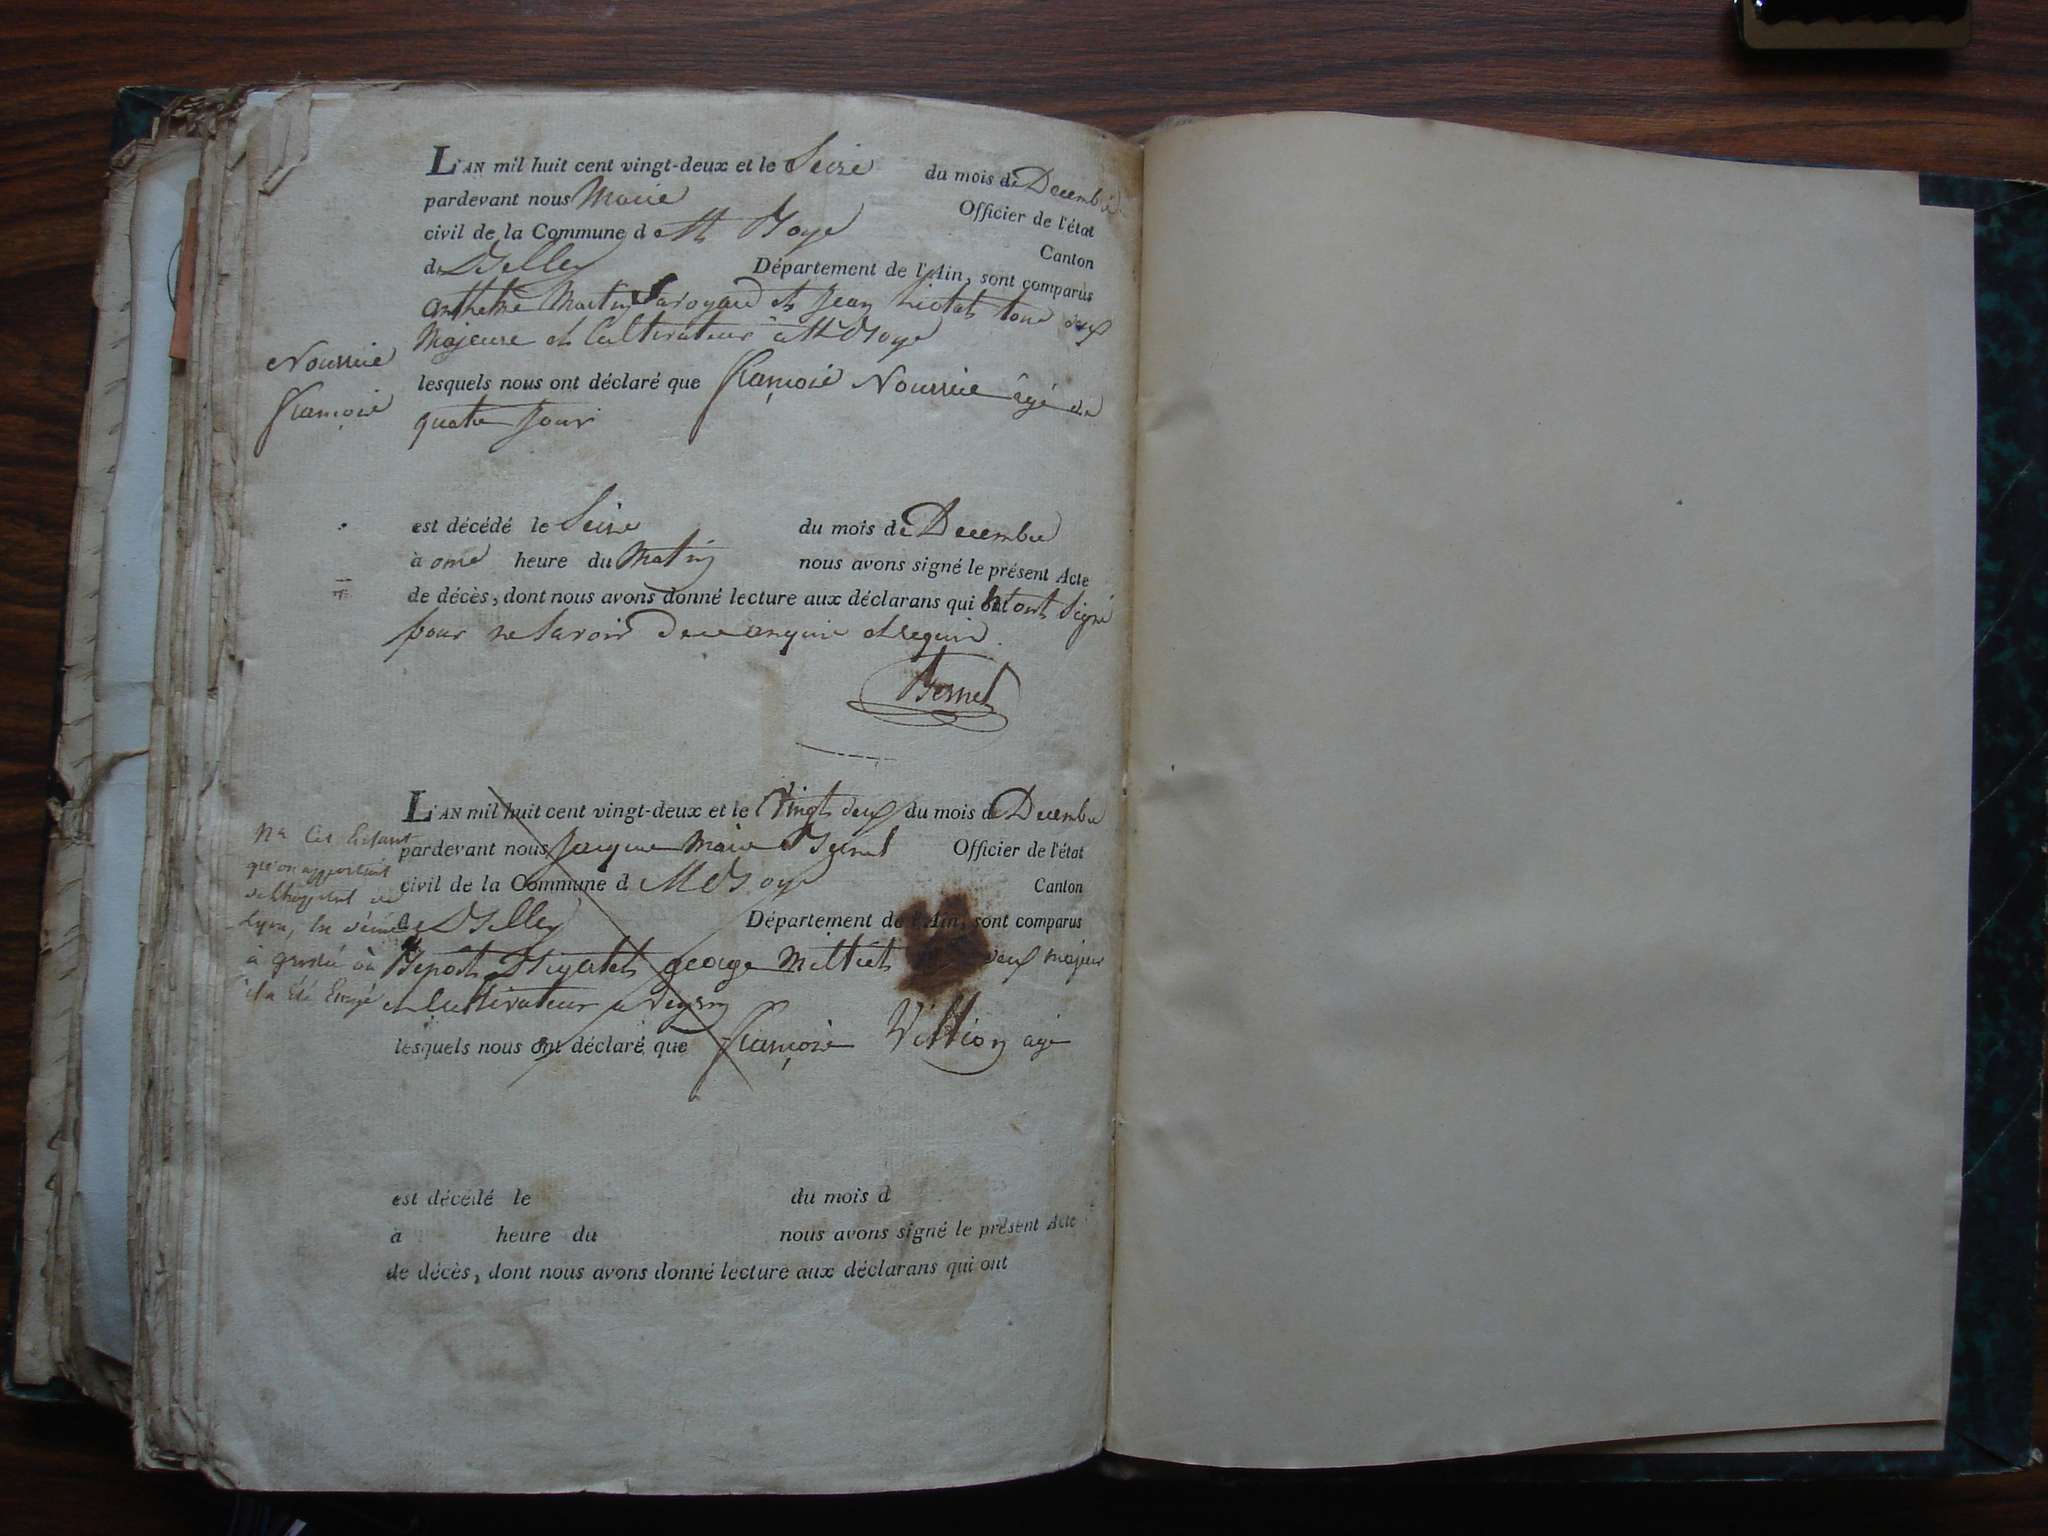 L'AN mil huit cent vingt-deux et le Seize du mois de Decembre
pardevant nous Maire Officier de l'état
civil de la Commune d
de Belley Canton
Département de l'Ain, sont comparus
Anthelme Martin Savoyard et Jean tous deux
Majeure et Cultivateur a
Nourrice
François
lesquels nous ont déclaré que François Nourrice âgé de
quatre jour
est décédé le Seize du mois de Decembre
à onze heure du Matin nous avons signé le présent Acte
de décès, dont nous avons donné lecture aux déclarans qui n'ont Signé
pour ne Savoir De ce enquis et requis
Bernet
L'AN mil huit cent vingt-deux et le Vingt deux du mois de Decembre
pardevant nous Jacque Marie Bernet Officier de l'état
civil de la Commune d Canton
de Belley Département de l'Ain, sont comparus
george Milliet deux majeur
et Cultivateur a
lesquels nous ont déclaré que François age
Na Cet Enfant
qu'on apportait
de
Lyon,
à où
il a été
est décédé le du mois d
à heure du nous avons signé le présent Acte
de décès, dont nous avons donné lecture aux déclarans qui ont